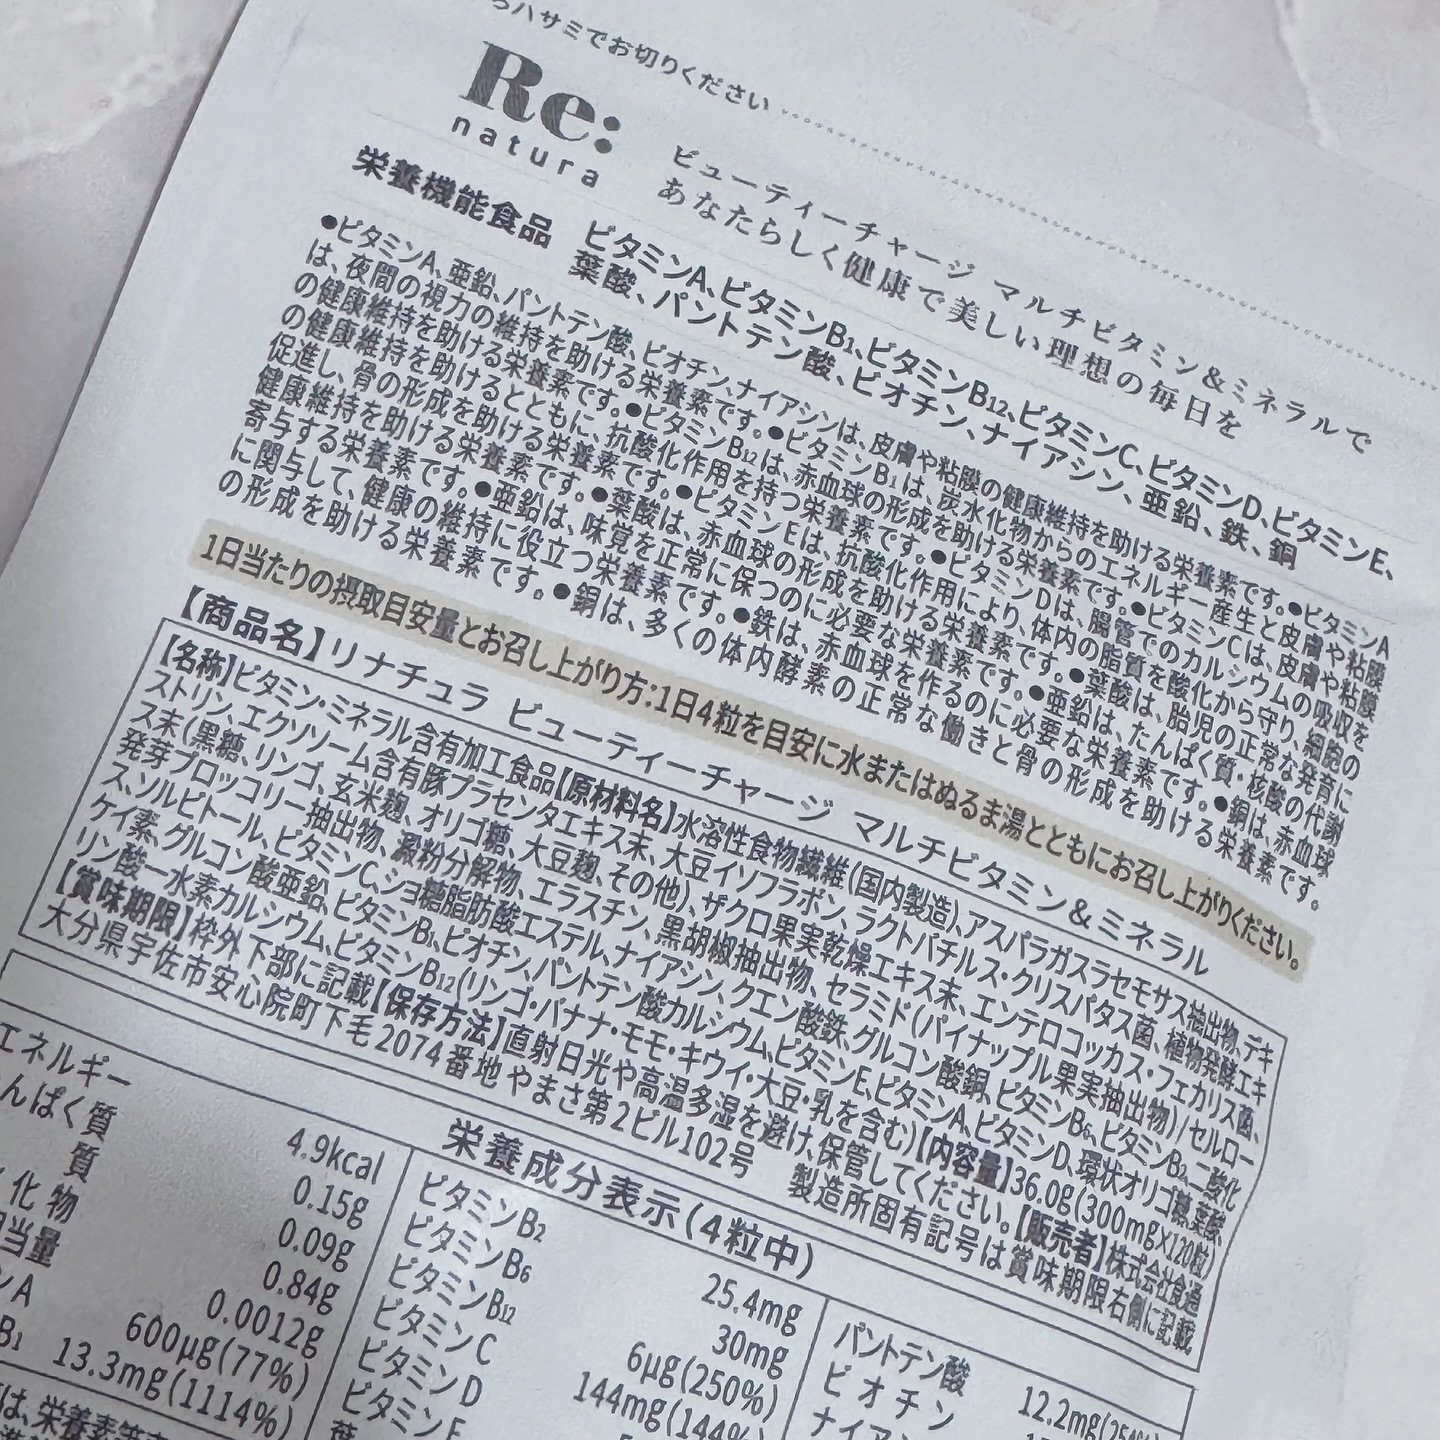 らハサミでお切りください
Re:
natura
ビューティーチャージ マルチビタミン&ミネラルで
あなたらしく健康で美しい理想の毎日を
栄養機能食品
ビタミンA、ビタミンB1、ビタミンB12、ビタミンC、ビタミンD、ビタミンE、
葉酸、パントテン酸、ビオチン、ナイアシン、亜鉛、鉄、銅
●ビタミンA、亜鉛、パントテン酸、ビオチン、ナイアシンは、皮膚や粘膜の健康維持を助ける栄養素です。●ビタミンA
は、夜間の視力の維持を助ける栄養素です。●ビタミンB1は、炭水化物からのエネルギー産生と皮膚や粘膜
の健康維持を助ける栄養素です。●ビタミンB12は、赤血球の形成を助ける栄養素です。●ビタミンCは、皮膚や粘膜
の健康維持を助けるとともに、抗酸化作用を持つ栄養素です。●ビタミンDは、腸管でのカルシウムの吸収を
促進し、骨の形成を助ける栄養素です。●ビタミンEは、抗酸化作用により、体内の脂質を酸化から守り、細胞の
健康維持を助ける栄養素です。●葉酸は、赤血球の形成を助ける栄養素です。●葉酸は、胎児の正常な発育に
寄与する栄養素です。●亜鉛は、味覚を正常に保つのに必要な栄養素です。●亜鉛は、たんぱく質・核酸の代謝
に関与して、健康の維持に役立つ栄養素です。●鉄は、赤血球を作るのに必要な栄養素です。●銅は、赤血球
の形成を助ける栄養素です。●銅は、多くの体内酵素の正常な働きと骨の形成を助ける栄養素です。
1日当たりの摂取目安量とお召し上がり方:1日4粒を目安に水またはぬるま湯とともにお召し上がりください。
【商品名】リナチュラ ビューティーチャージ マルチビタミン&ミネラル
【名称】ビタミン・ミネラル含有加工食品【原材料名】水溶性食物繊維(国内製造)、アスパラガスラセモサス抽出物、デキ
ストリン、エクソソーム含有豚プラセンタエキス末、大豆イソフラボン、ラクトバチルス・クリスパタス菌、植物発酵エキ
ス末(黒糖、リンゴ、玄米麹、オリゴ糖、大豆麹、その他)、ザクロ果実乾燥エキス末、エンテロコッカス・フェカリス菌、
発芽ブロッコリー抽出物、澱粉分解物、エラスチン、黒胡椒抽出物、セラミド(パイナップル果実抽出物)/セルロー
ス、ソルビトール、ビタミンC、ショ糖脂肪酸エステル、ナイアシン、クエン酸鉄、グルコン酸銅、ビタミンB6、ビタミンB2、二酸化
ケイ素、グルコン酸亜鉛、ビタミンB1、ビオチン、パントテン酸カルシウム、ビタミンE、ビタミンA、ビタミンD、環状オリゴ糖、葉酸、
リン酸一水素カルシウム、ビタミンB12(リンゴ・バナナ・モモ・キウイ・大豆・乳を含む)【内容量】36.0g(300mg×120粒)
【賞味期限】枠外下部に記載【保存方法】直射日光や高温多湿を避け、保管してください。【販売者】株式会社食通
大分県宇佐市安心院町下毛2074番地 やまさ第2ビル102号 製造所固有記号は賞味期限右側に記載
栄養成分表示(4粒中)
エネルギー 4.9kcal
んぱく質 0.15g
質 0.09g
化物 0.84g
相当量 0.0012g
ンA 600μg(77%)
B1 13.3mg(1114%)
ビタミンB2 25.4mg
ビタミンB6 30mg
ビタミンB12 6μg(250%)
ビタミンC 144mg(144%)
ビタミンD
ビタミンE
葉
パントテン酸 12.2mg
ビオチン
ナイアシ
は、栄養素等